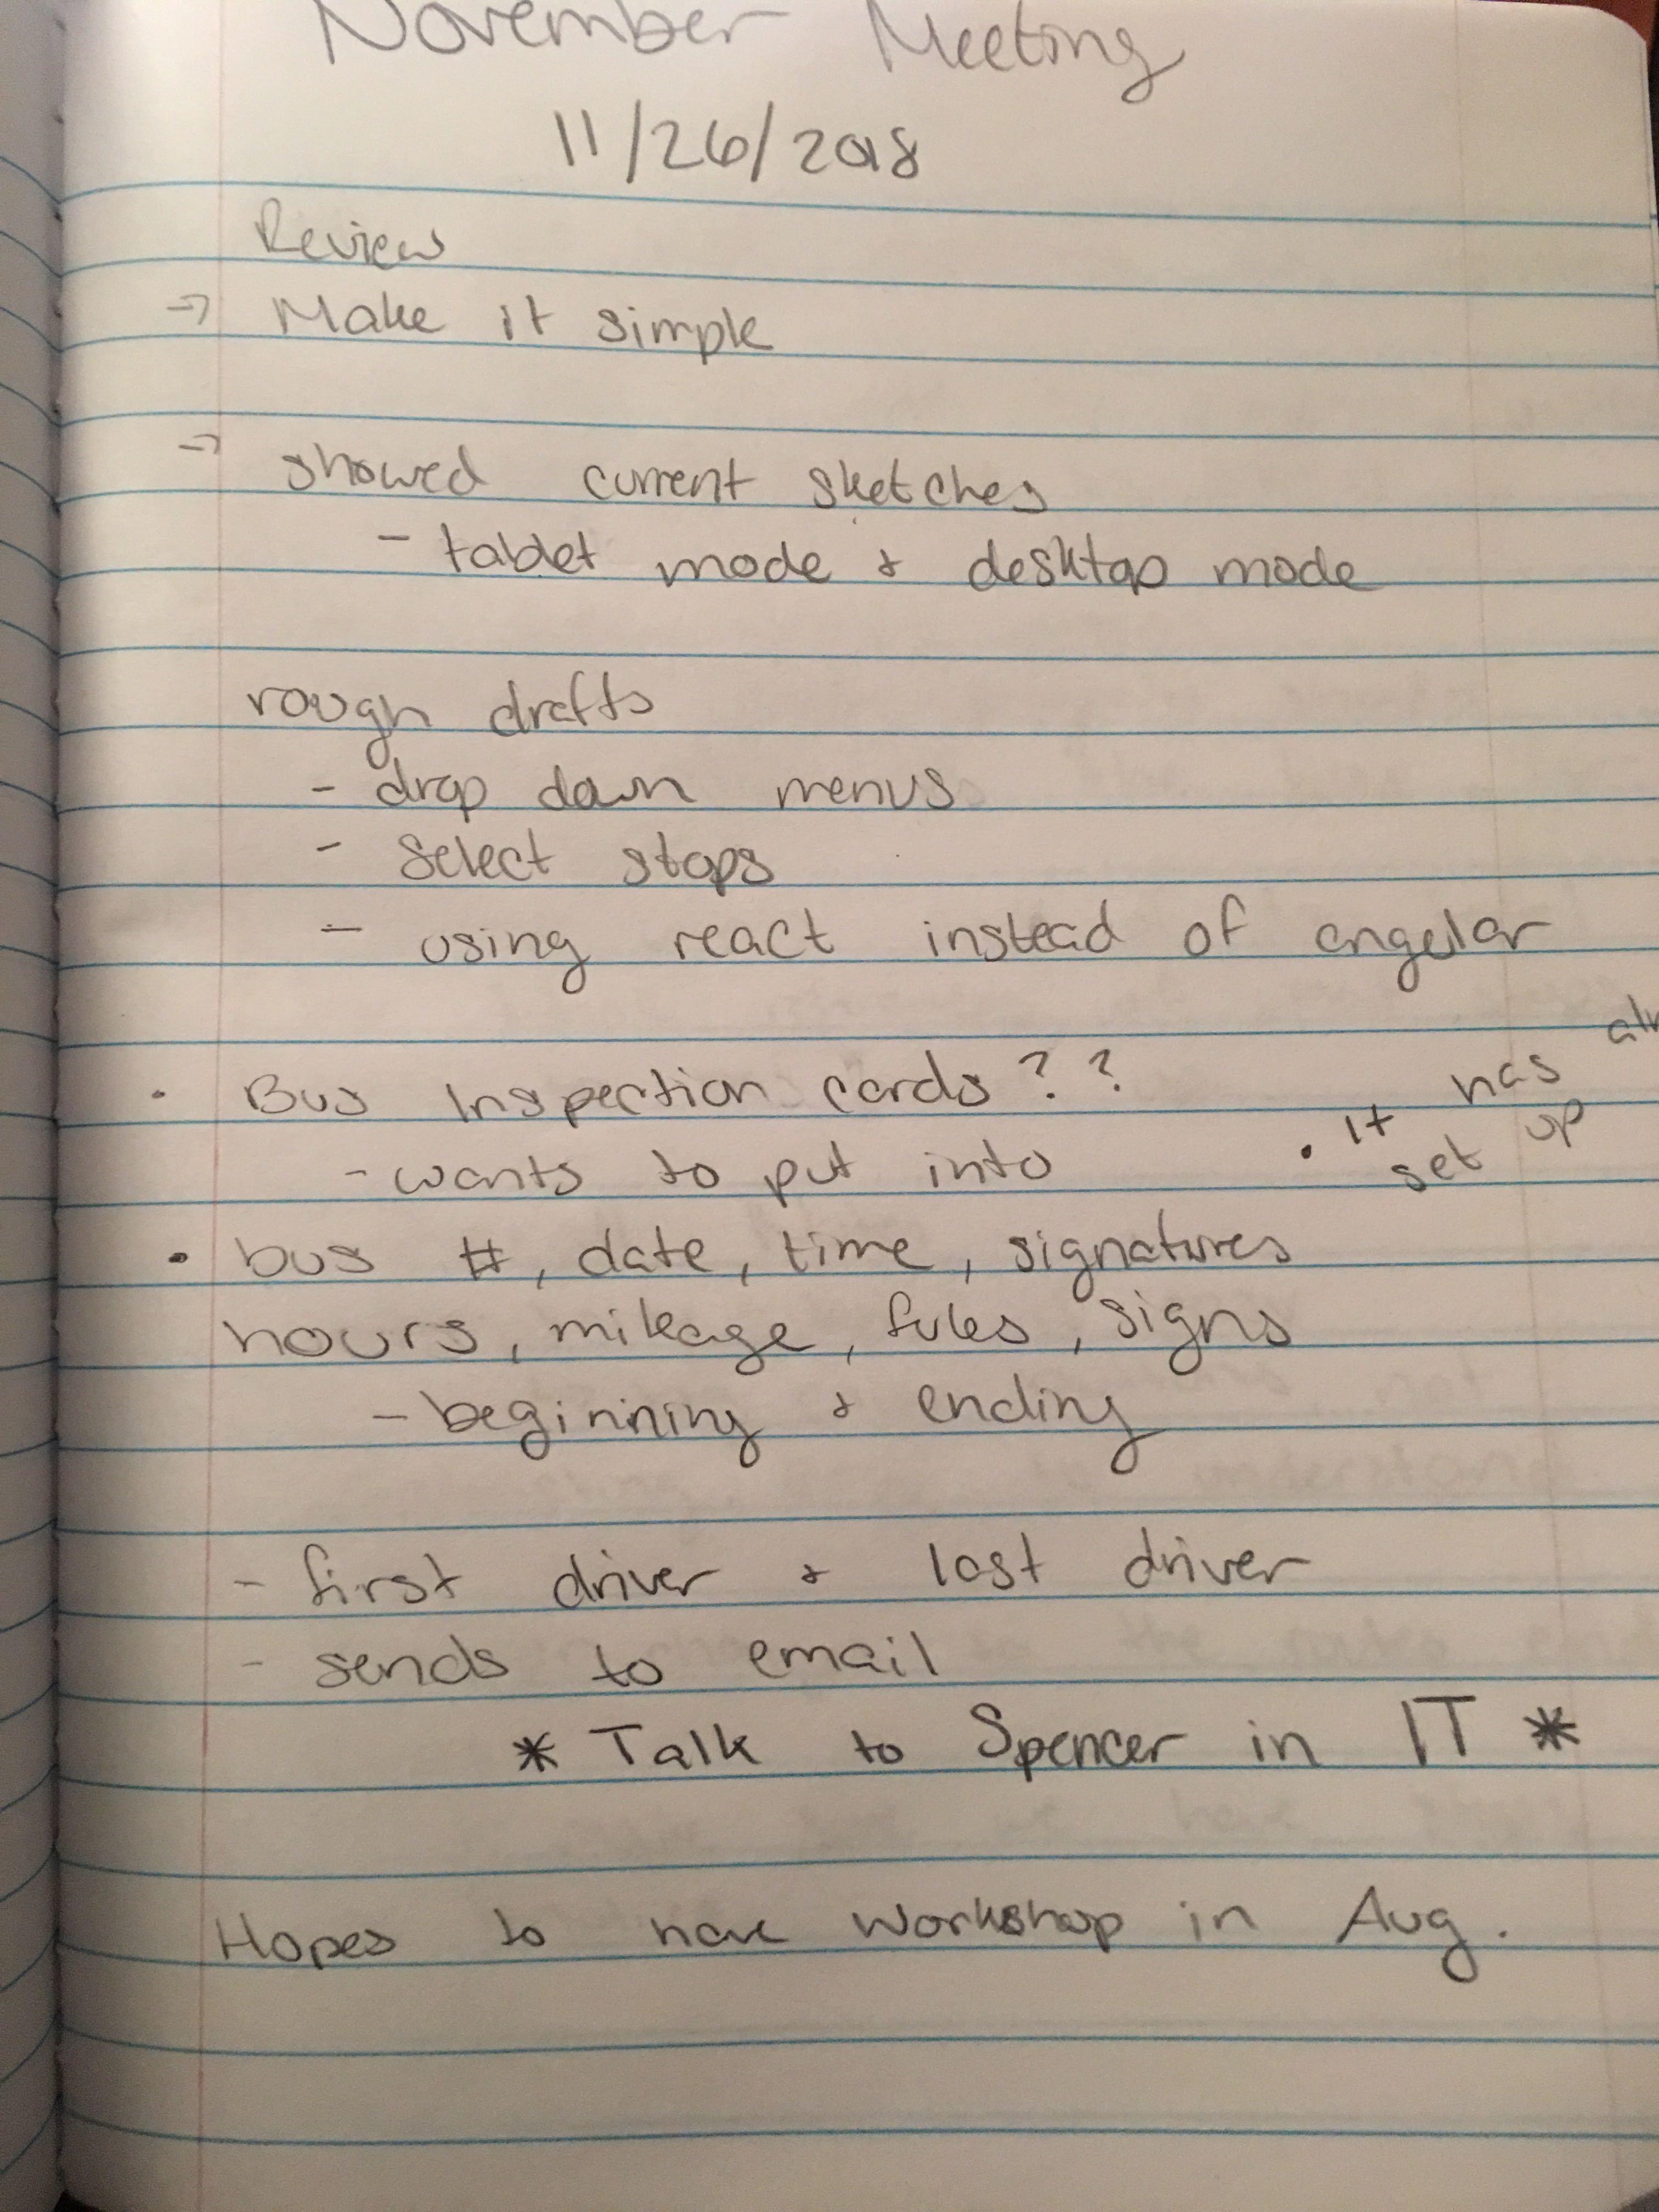 November Meeting
11/26/2018
Review
→ Make it simple
→ showed current sketches
- tablet mode & desktop mode
rough drafts
- drop down menus
- select stops
- using react instead of angular
• Bus Inspection cards??
- wants to put into
• It has
set up
• bus #, date, time, signatures
hours, mileage, fules, signs
- beginning & ending
- first driver & last driver
- sends to email
* Talk to Spencer in IT *
Hopes to have workshop in Aug.